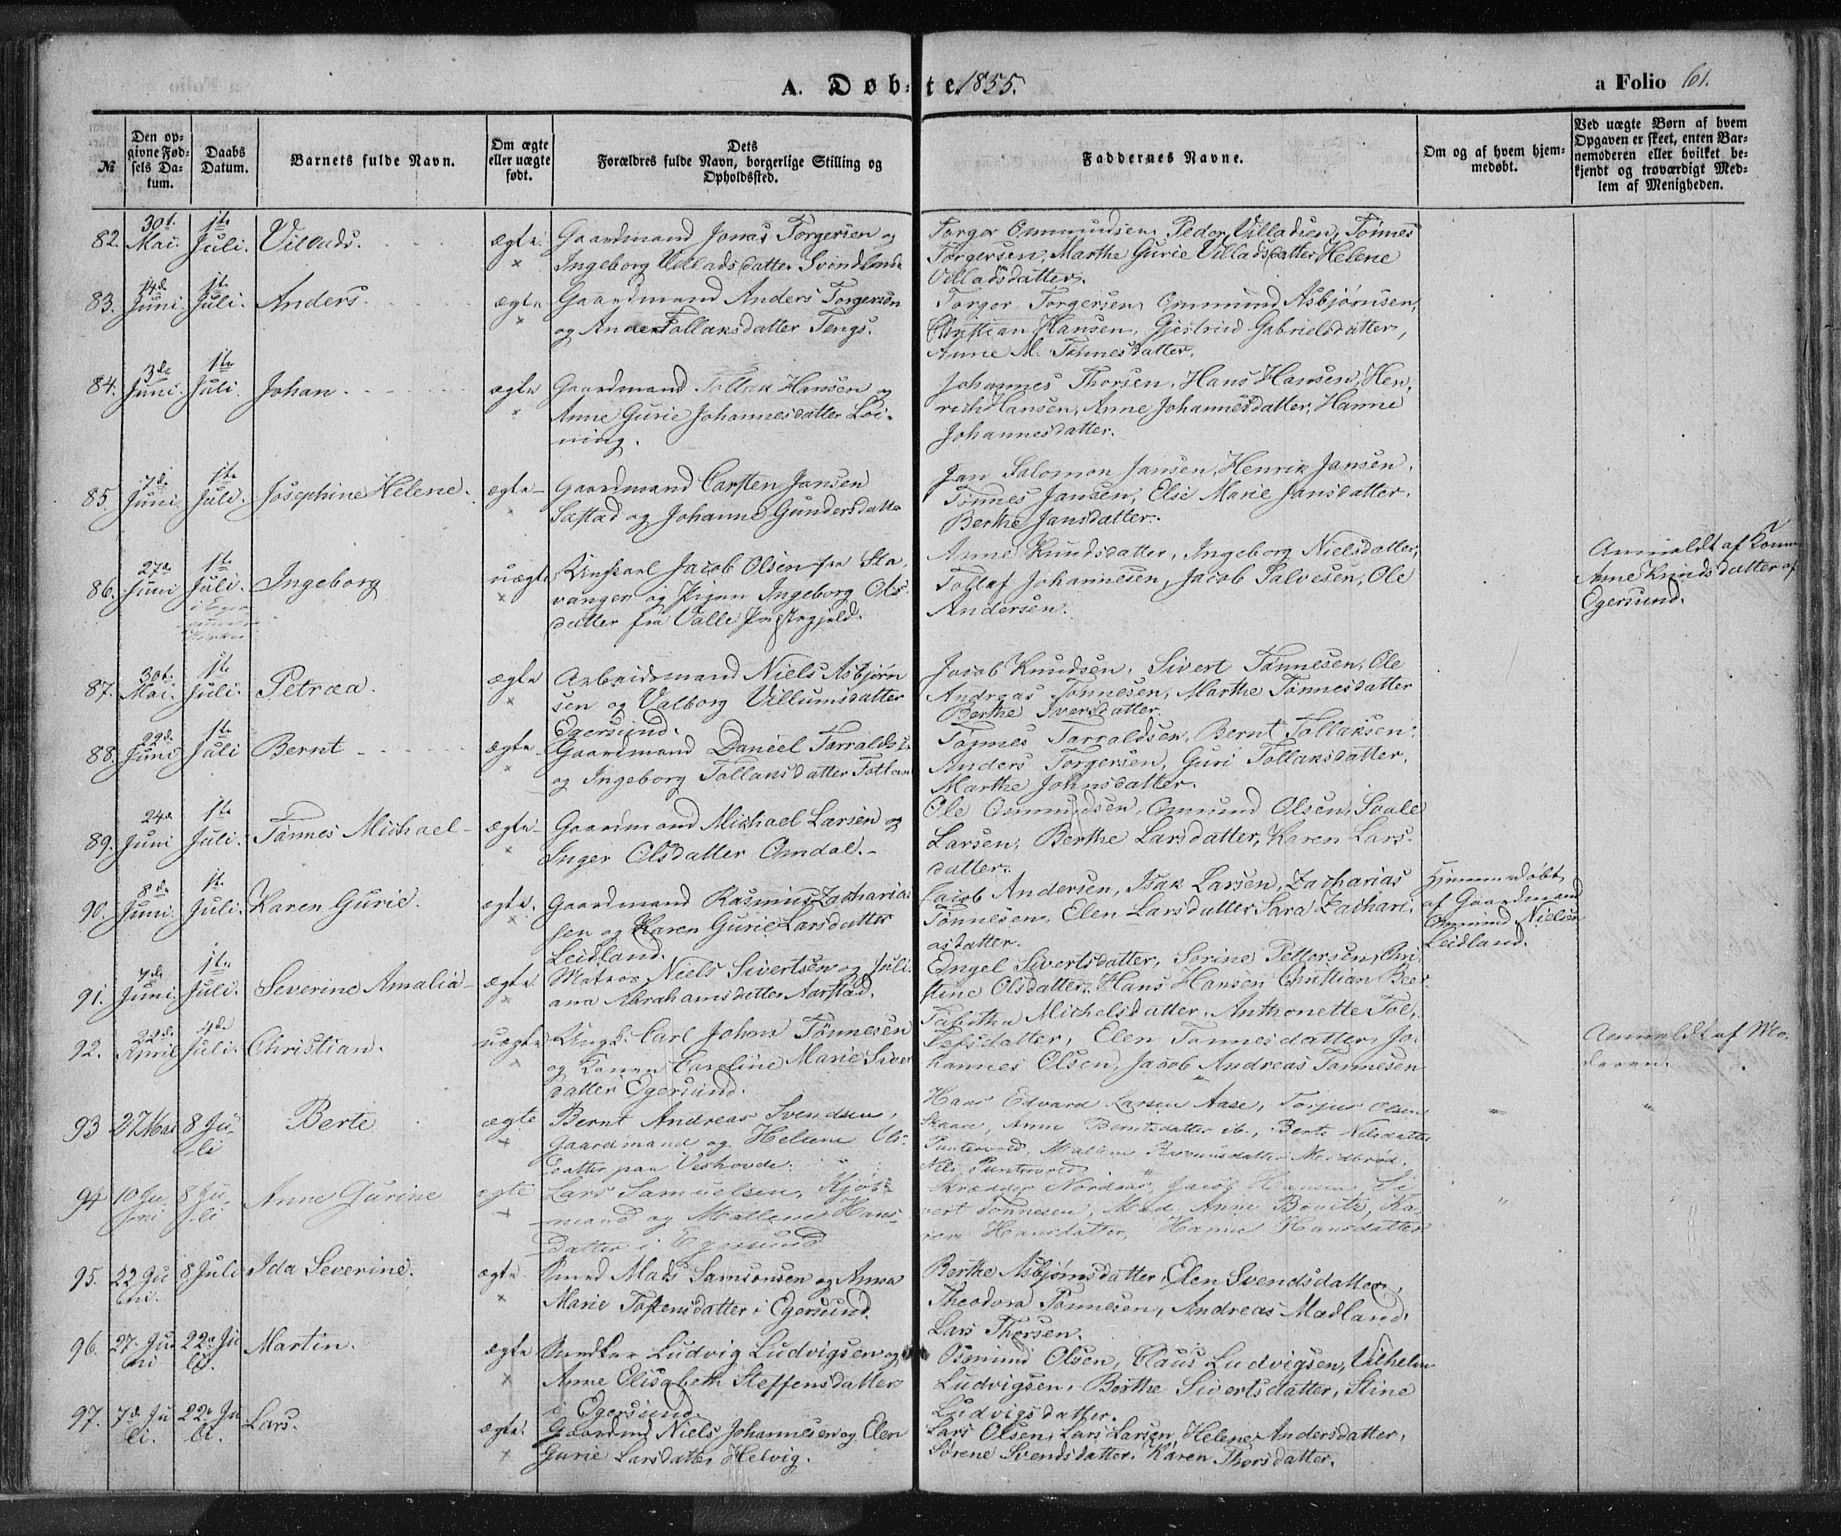 A. Døbte 1855.
a Folio 61.
№
Den opgivne Fødsels Datum.
Daabs Datum.
Barnets fulde Navn.
Om ægte eller uægte født.
Dets Forældres fulde Navn, borgerlige Stilling og Opholdssted.
Faddernes Navne.
Om og af hvem hjemmedøbt.
Ved uægte Børn af hvem Opgaven er skeet, enten Barnemoderen eller hvilket bekjendt og troværdigt Medlem af Menigheden.
82. 30t. Mai. 1te Juli. Villads. ægte. Gaardmand Jonas Torgersen og
Ingeborg Villadsdatter Svindland
Torger Ommundsen, Peder Villadsen, Tønnes
Torgersen, Marthe Gurie Villadsdatter, Helene
Villadsdatter.
83. 14de Juni 1te Juli. Anders. ægte Gaardmand Anders Torgersen
og Ane Tollaksdatter Tengs.
Torger Torgersen, Ommund Asbjørnsen,
Christian Hansen, Gjertrud Gabrielsdatter,
Anne M. Tønnesdatter.
84. 3de Juni. 1te Juli. Johan. ægte Gaardmand Tollak Hansen og
Anne Gurie Johannesdatter Lòi-
ning.
Johannes Thorsen, Hans Hansen, Hen,
rich Hansen, Anne Johannesdatter, Hanne
Johannesdatter.
85. 7de Juni 1te Juli. Josephine Helene. ægte Gaardmand Carsten Jansen
Sastad og Johanne Gundersdatte
Jan Salomon Jansen, Henrik Jansen,
Tønnes Jansen, Elie Marie Jansdatter.
Berthe Jansdatter.
86. 27de Juni 1te Juli Ingeborg uægte Ungkarl Jacob Olsen fra Sta,
vanger og Pigen Ingeborg Ols-
datter fra Valle Præstegjeld.
Anne Knudsdatter, Ingeborg Nielsdatter,
Tollaf Johannesen, Jacob Salvesen, Ole
Andersen.
Anmeldt af Kone
Anne Knudsdatter af
Egersund.
87. 30t. Mai. 1te Juli. Petræa. ægte Arbeidsmand Niels Asbjørn
sen og Valborg Villumsdatter
Egersund.
Jacob Knudsen, Sivert Tønnesen, Ole
Andreas Tønnesen, Marthe Tønnesdatter
Berthe Iversdatter.
88. 22de Juni 1te Juli Bernt ægte. Gaardmand Daniel Torralds
og Ingeborg Tollaksdatter Fotland
Tønnes Torraldsen, Bernt Tollaksen,
Anders Torgersen, Guri Tollaksdatter,
Marthe Johnsdatter.
89. 24de Juni 1te Juli. Tønnes Michael ægte Gaardmand Michael Larsen og
Inger Olsdatter Omdal.
Ole Ommundsen, Ommund Olsen, Svale
Larsen, Berthe Larsdatter, Karen Lars-
datter.
90. 8de Juni. 1te Juli. Karen Gurie. ægte. Gaardmand Rasmus Zacharias
sen og Karen Gurie Larsdatter
Leidland.
Jacob Andersen, Isak Larsen, Zacharias
Tønnesen, Elen Larsdatter, Sara Zachari,
asdatter.
Hjemmedøbt
af Gaardmand
Ommund Nielsen
Leidland.
91. 7de Juni 1te Juli. Severine Amalia ægte Matros Niels Sivertsen og Juli
ana Abrahamsdatter Aarstad.
Engel Sivertsdatter, Serine Pettersen, Chri
stine Olsdatter, Hans Hansen, Christian Beer
92. 22de April 4de Juli. Christian. uægte Ungk. Carl Johan Tønnesen
og Konen Caroline Marie Siver
datter Egersund.
Tabitha Michelsdatter, Anthonette Tol,
lefsdatter, Elen Tønnesdatter, Jo,
hannes Olsen, Jacob Andreas Tønnesen
Anmeldt af Mo,
deren.
93 27 Mai 8 Ju-
li Berte ægte Bernt Andreas Svendsen,
Gaardmand og Helene Ols-
datter paa Veshovde.
Hans Edvard Larsen Aase, Torjus Olsen
Skaare, Anne Berntsdatter ib., Berte Nilsdatter
Puntervold, Malene Rasmusdatter Meidbrød,
Nils Puntervold
94 10 Ju-
ni 8 Ju-
li Anne Gurine ægte Lars Samuelsen, Kjøb-
mand og Mallene Hans-
datter i Egersund
Skrædder Nordaas, Jacob Hansen, Si
vert Tønnesen, Mad. Anne Bovitz, Ka-
ren Hansdatter, Hanne Hansdatter
95. 22 Ju
ni. 8 Juli Ida Severine. ægte Smed Mads Samsonsen og Anna
Marie Tostensdatter i Egersund.
Berthe Asbjørnsdatter, Elen Svendsdatter,
Theodora Tønnesen, Andreas Mædland,
Lars Thorsen.
96. 27. Ju
ni 22. Ju
li. Martin. ægte Snedker Ludvig Ludvigsen og
Anne Elisabeth Steffensdatter
i Egersund.
Osmund Olsen, Claus Ludvigsen, Vilhelm
Ludvigsen, Berthe Sivertsdatter, Stine
Ludvigsdatter.
97. 7de Ju
li. 22. Ju
li. Lars. ægte. Gaardmd Niels Johannesen og Elen
Gurie Larsdatter Helvig.
Lars Olsen, Lars Larsen, Helene Andersdatter,
Sørene Svendsdatter, Karen Thorsdatter.